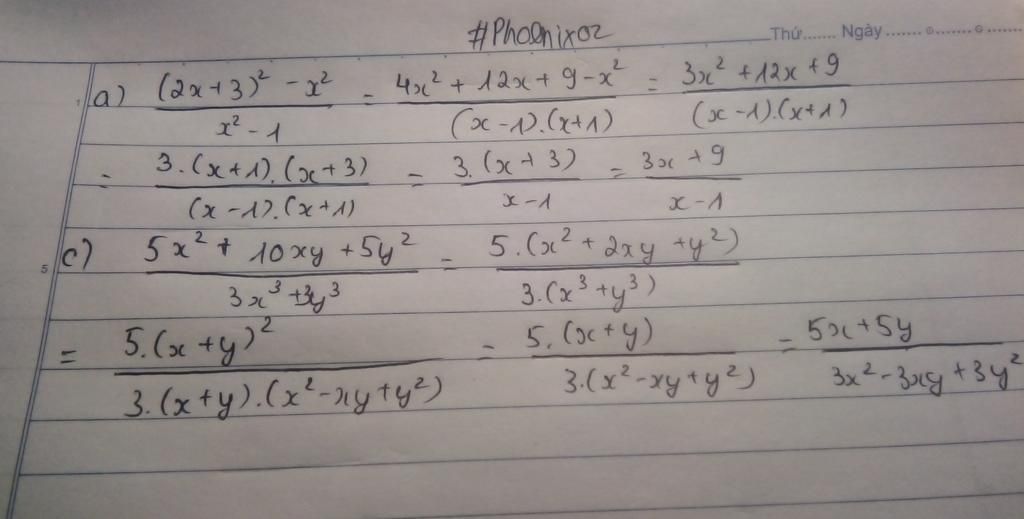 #Phoenix02
Thứ....... Ngày ....... ⊙ ....... ⊙ .......
a) ((2x+3)² - x²)/(x² - 1) = (4x² + 12x + 9 - x²)/((x-1).(x+1)) = (3x² + 12x + 9)/((x-1).(x+1))
= (3.(x+1).(x+3))/((x-1).(x+1)) = (3.(x+3))/(x-1) = (3x+9)/(x-1)
5 c) (5x² + 10xy + 5y²)/(3x³ + 3y³) = (5.(x² + 2xy + y²))/(3.(x³ + y³))
= (5.(x+y)²)/(3.(x+y).(x² - xy + y²)) = (5.(x+y))/(3.(x² - xy + y²)) = (5x+5y)/(3x² - 3xy + 3y²)